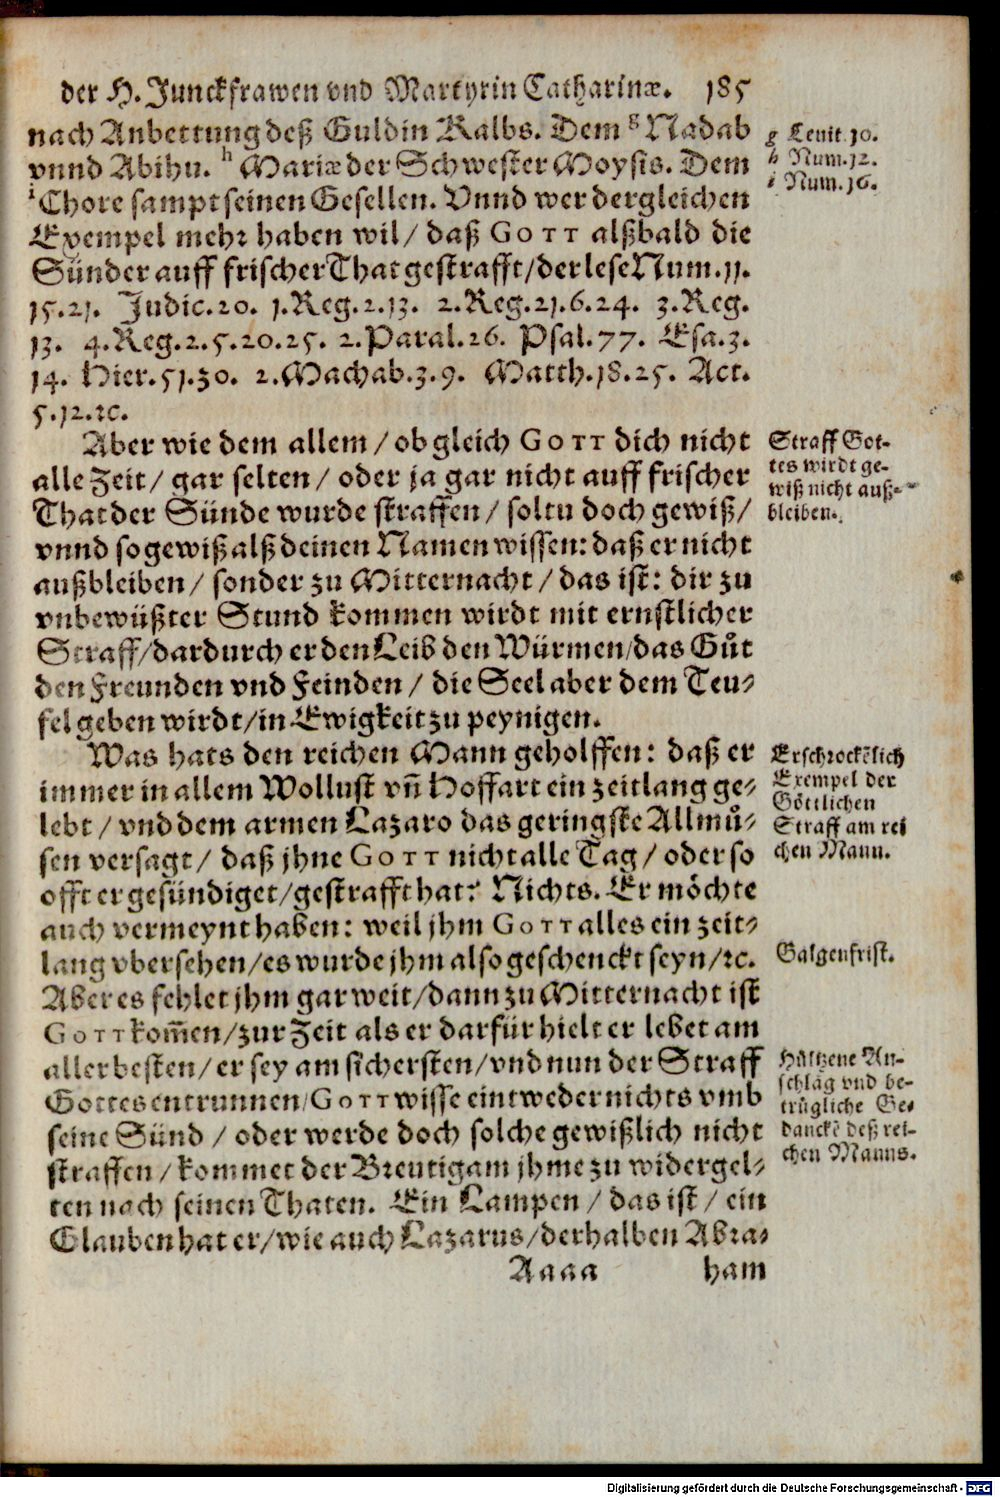 der H. Junckfrawen vnd Martyrin Catharinæ. 185
nach Anbettung deß Guldin Kalbs. Dem g Nadab
vnnd Abihu. h Mariæ der Schwester Moysis. Dem
i Chore sampt seinen Gesellen. Vnnd wer dergleichen
Exempel mehr haben wil / daß GOTT alßbald die
Sünder auff frischer That gestrafft / der lese Num. 11.
15.21. Judic. 20. 1. Reg. 2.13. 2. Reg. 21.6.24. 3. Reg.
13. 4. Reg. 2.5.20.25. 2. Paral. 26. Psal. 77. Esa. 3.
14. Hier. 51.30. 2. Machab. 3.9. Matth. 18.25. Act.
5.12. ꝛc.
g Leuit. 10.
h Num. 12.
i Num. 16.
Aber wie dem allem / ob gleich GOTT dich nicht
alle Zeit / gar selten / oder ja gar nicht auff frischer
That der Sünde wurde straffen / soltu doch gewiß /
vnnd so gewiß alß deinen Namen wissen: daß er nicht
außbleiben / sonder zu Mitternacht / das ist: dir zu
vnbewüßter Stund kommen wirdt mit ernstlicher
Straff / dardurch er den Leib den Würmen / das Gůt
den Freunden vnd Feinden / die Seel aber dem Teu-
fel geben wirdt / in Ewigkeit zu peynigen.
Straff Got-
tes wirdt ge-
wiß nicht auß-
bleiben.
Was hats den reichen Mann geholffen: daß er
immer in allem Wollust vñ Hoffart ein zeitlang ge-
lebt / vnd dem armen Lazaro das geringste Allmů-
sen versagt / daß jhne GOTT nicht alle Tag / oder so
offt er gesündiget / gestrafft hat? Nichts. Er möchte
auch vermeynt haben: weil jhm GOTT alles ein zeit-
lang vbersehen / es wurde jhm also geschenckt seyn / ꝛc.
Aber es fehlet jhm gar weit / dann zu Mitternacht ist
GOTT kom̃en / zur Zeit als er darfür hielt er lebet am
allerbesten / er sey am sichersten / vnd nun der Straff
Gottes entrunnen / GOTT wisse eintweder nichts vmb
seine Sünd / oder werde doch solche gewißlich nicht
straffen / kommet der Breutigam jhme zu widergel-
ten nach seinen Thaten. Ein Lampen / das ist / ein
Glauben hat er / wie auch Lazarus / derhalben Abra-
Erschrockẽlich
Exempel der
Göttlichen
Straff am rei
chen Mann.
Galgenfrist.
Hültzene An-
schläg vnd be-
trügliche Ge-
danckẽ deß rei-
chen Manns.
Aaaa ham
Digitalisierung gefördert durch die Deutsche Forschungsgemeinschaft - DFG